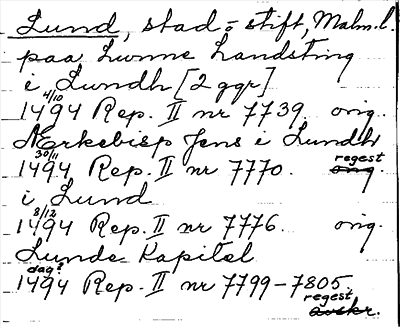 Lund, stad = stift, Malm.l.
paa Lunne Landsting
i Lundh [2 ggr]
4/10
1494 Rep. II nr 7739. orig.
Ærkebisp Jens i Lundh
30/11 regest
1494 Rep. II nr 7770. orig.
i Lund
8/12
1494 Rep. II nr 7776. orig.
Lunde Kapitel
dag?
1494 Rep. II nr 7799-7805.
regest
avskr.